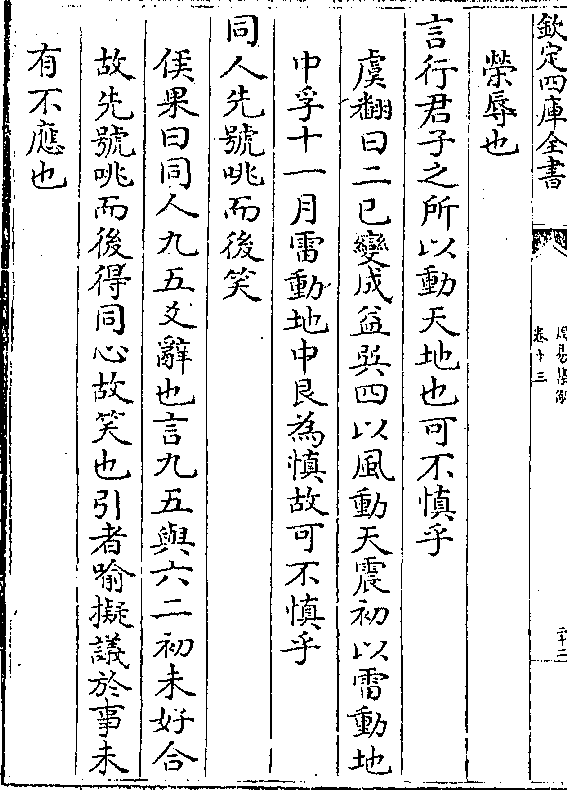 欽定四庫全書
卷十三
榮辱也
言行君子之所以動天地也可不慎乎
虞翻曰二已變成益巽四以風動天震初以雷動地
中孚十一月雷動地中艮為慎故可不慎乎
同人先號咷而後笑
侯果曰同人九五爻辭也言九五與六二初未好合
故先號咷而後得同心故笑也引者喻擬議於事未
有不應也